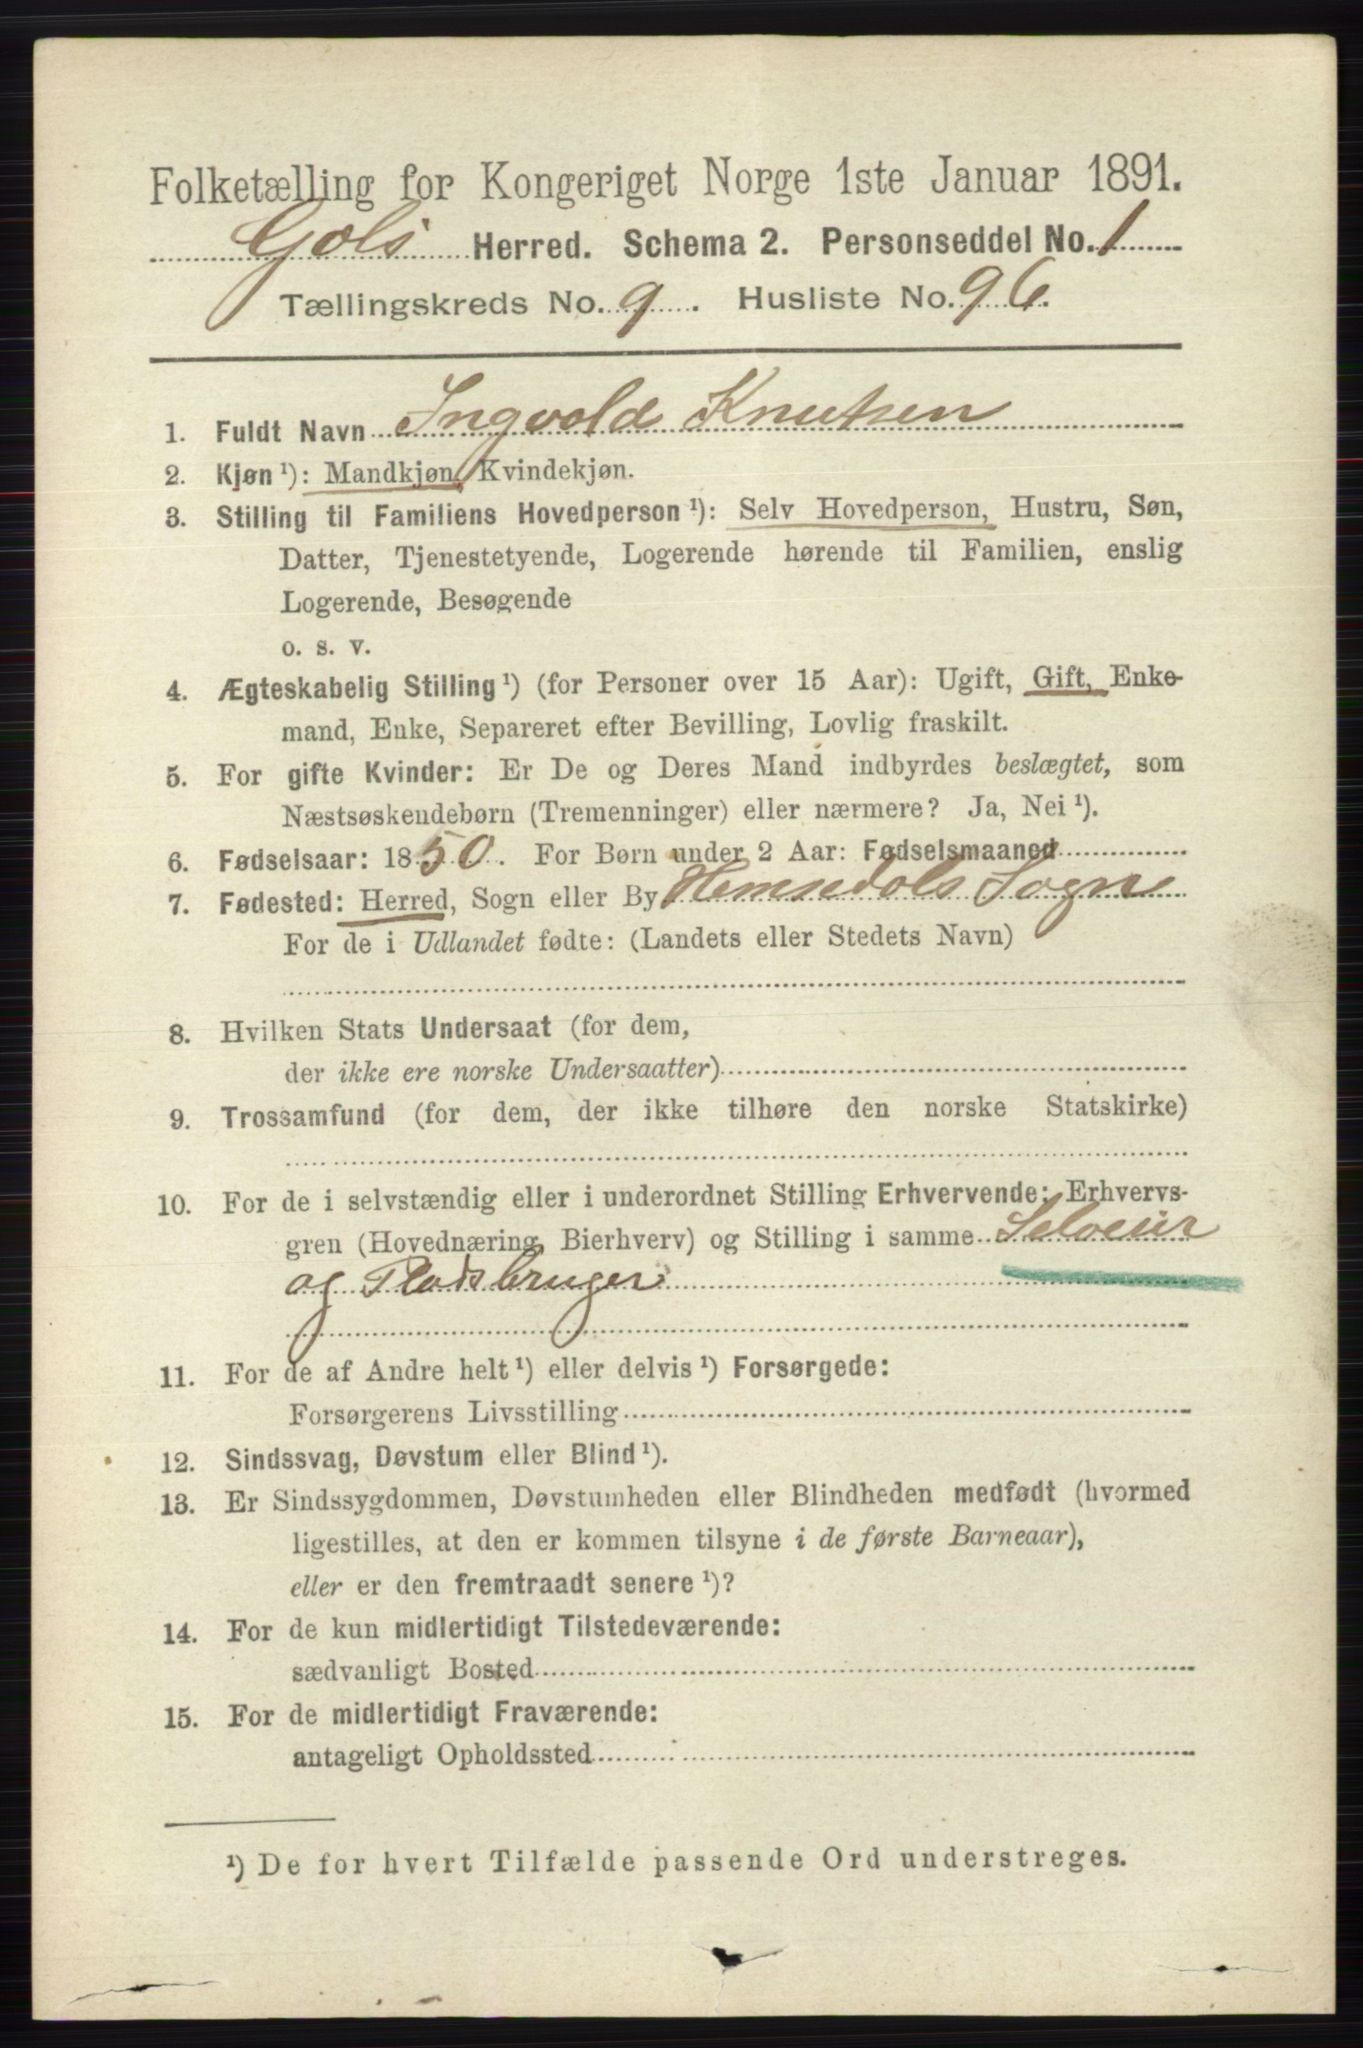 Folketælling for Kongeriget Norge 1ste Januar 1891.
Gols Herred. Schema 2. Personseddel No. 1
Tællingskreds No. 9. Husliste No. 96.
1. Fuldt Navn Ingvold Knutsen
2. Kjøn ¹): Mandkjøn, Kvindekjøn.
3. Stilling til Familiens Hovedperson ¹): Selv Hovedperson, Hustru, Søn,
Datter, Tjenestetyende, Logerende hørende til Familien, enslig
Logerende, Besøgende
o. s. v.
4. Ægteskabelig Stilling ¹) (for Personer over 15 Aar): Ugift, Gift, Enke-
mand, Enke, Separeret efter Bevilling, Lovlig fraskilt.
5. For gifte Kvinder: Er De og Deres Mand indbyrdes beslægtet, som
Næstsøskendebørn (Tremenninger) eller nærmere? Ja, Nei ¹).
6. Fødselsaar: 1850. For Børn under 2 Aar: Fødselsmaaned
7. Fødested: Herred, Sogn eller By Hemsedals Sogn
For de i Udlandet fødte: (Landets eller Stedets Navn)
8. Hvilken Stats Undersaat (for dem,
der ikke ere norske Undersaatter)
9. Trossamfund (for dem, der ikke tilhøre den norske Statskirke)
10. For de i selvstændig eller i underordnet Stilling Erhvervende: Erhvervs-
gren (Hovednæring, Bierhverv) og Stilling i samme
og Pladsbruger
11. For de af Andre helt ¹) eller delvis ¹) Forsørgede:
Forsørgerens Livsstilling
12. Sindssvag, Døvstum eller Blind ¹).
13. Er Sindssygdommen, Døvstumheden eller Blindheden medfødt (hvormed
ligestilles, at den er kommen tilsyne i de første Barneaar),
eller er den fremtraadt senere ¹)?
14. For de kun midlertidigt Tilstedeværende:
sædvanligt Bosted
15. For de midlertidigt Fraværende:
antageligt Opholdssted
¹) De for hvert Tilfælde passende Ord understreges.